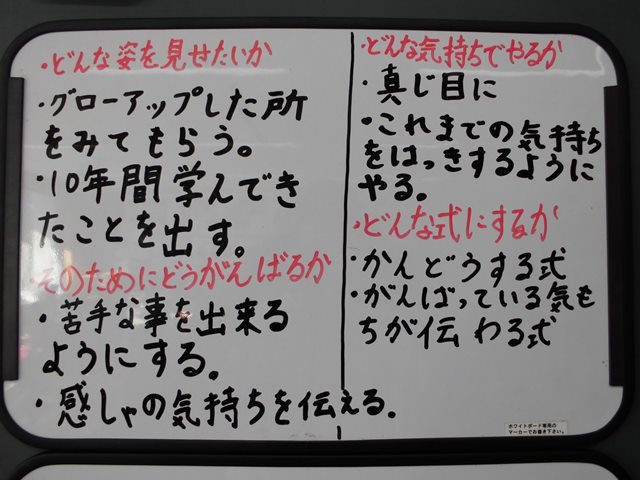 ・どんな姿を見せたいか
・グローアップした所
をみてもらう。
・10年間学んでき
たことを出す。
・そのためにどうがんばるか
・苦手な事を出来る
ようにする。
・感しゃの気持ちを伝える。
・どんな気持ちでやるか
・真じ目に
・これまでの気持ち
をはっきするように
やる。
・どんな式にするか
・かんどうする式
・がんばっている気も
ちが伝わる式
ホワイトボード専用の
マーカーでお書き下さい。